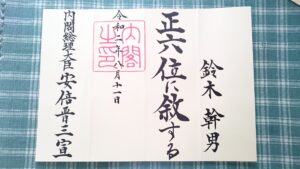 鈴木幹男
正六位に叙する
令和二年八月十一日
内閣之印
内閣総理大臣安倍晋三宣